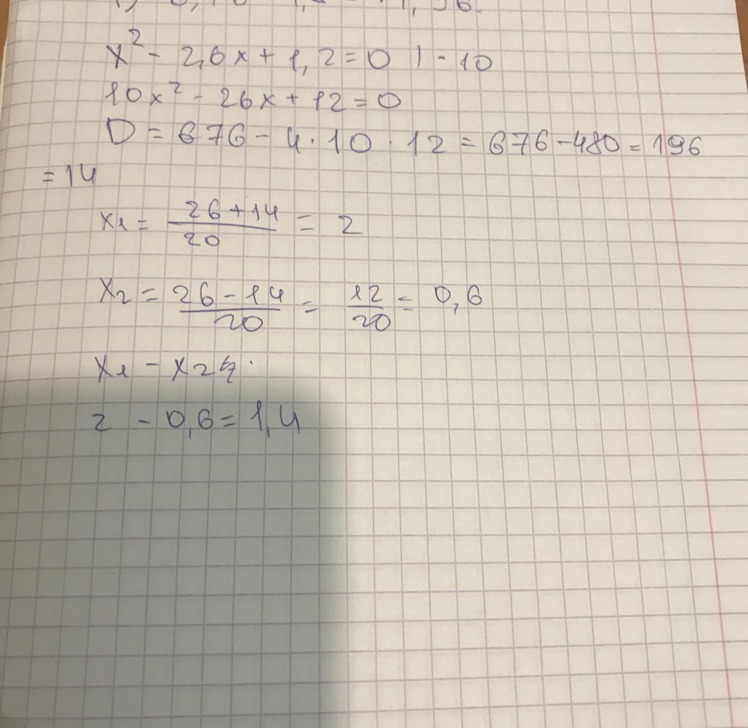 x² - 2,6x + 1,2 = 0 | · 10
10x² - 26x + 12 = 0
D = 676 - 4 · 10 · 12 = 676 - 480 = 196
= 14
x₁ = (26 + 14)/20 = 2
x₂ = (26 - 14)/20 = 12/20 = 0,6
x₁ - x₂
2 - 0,6 = 1,4